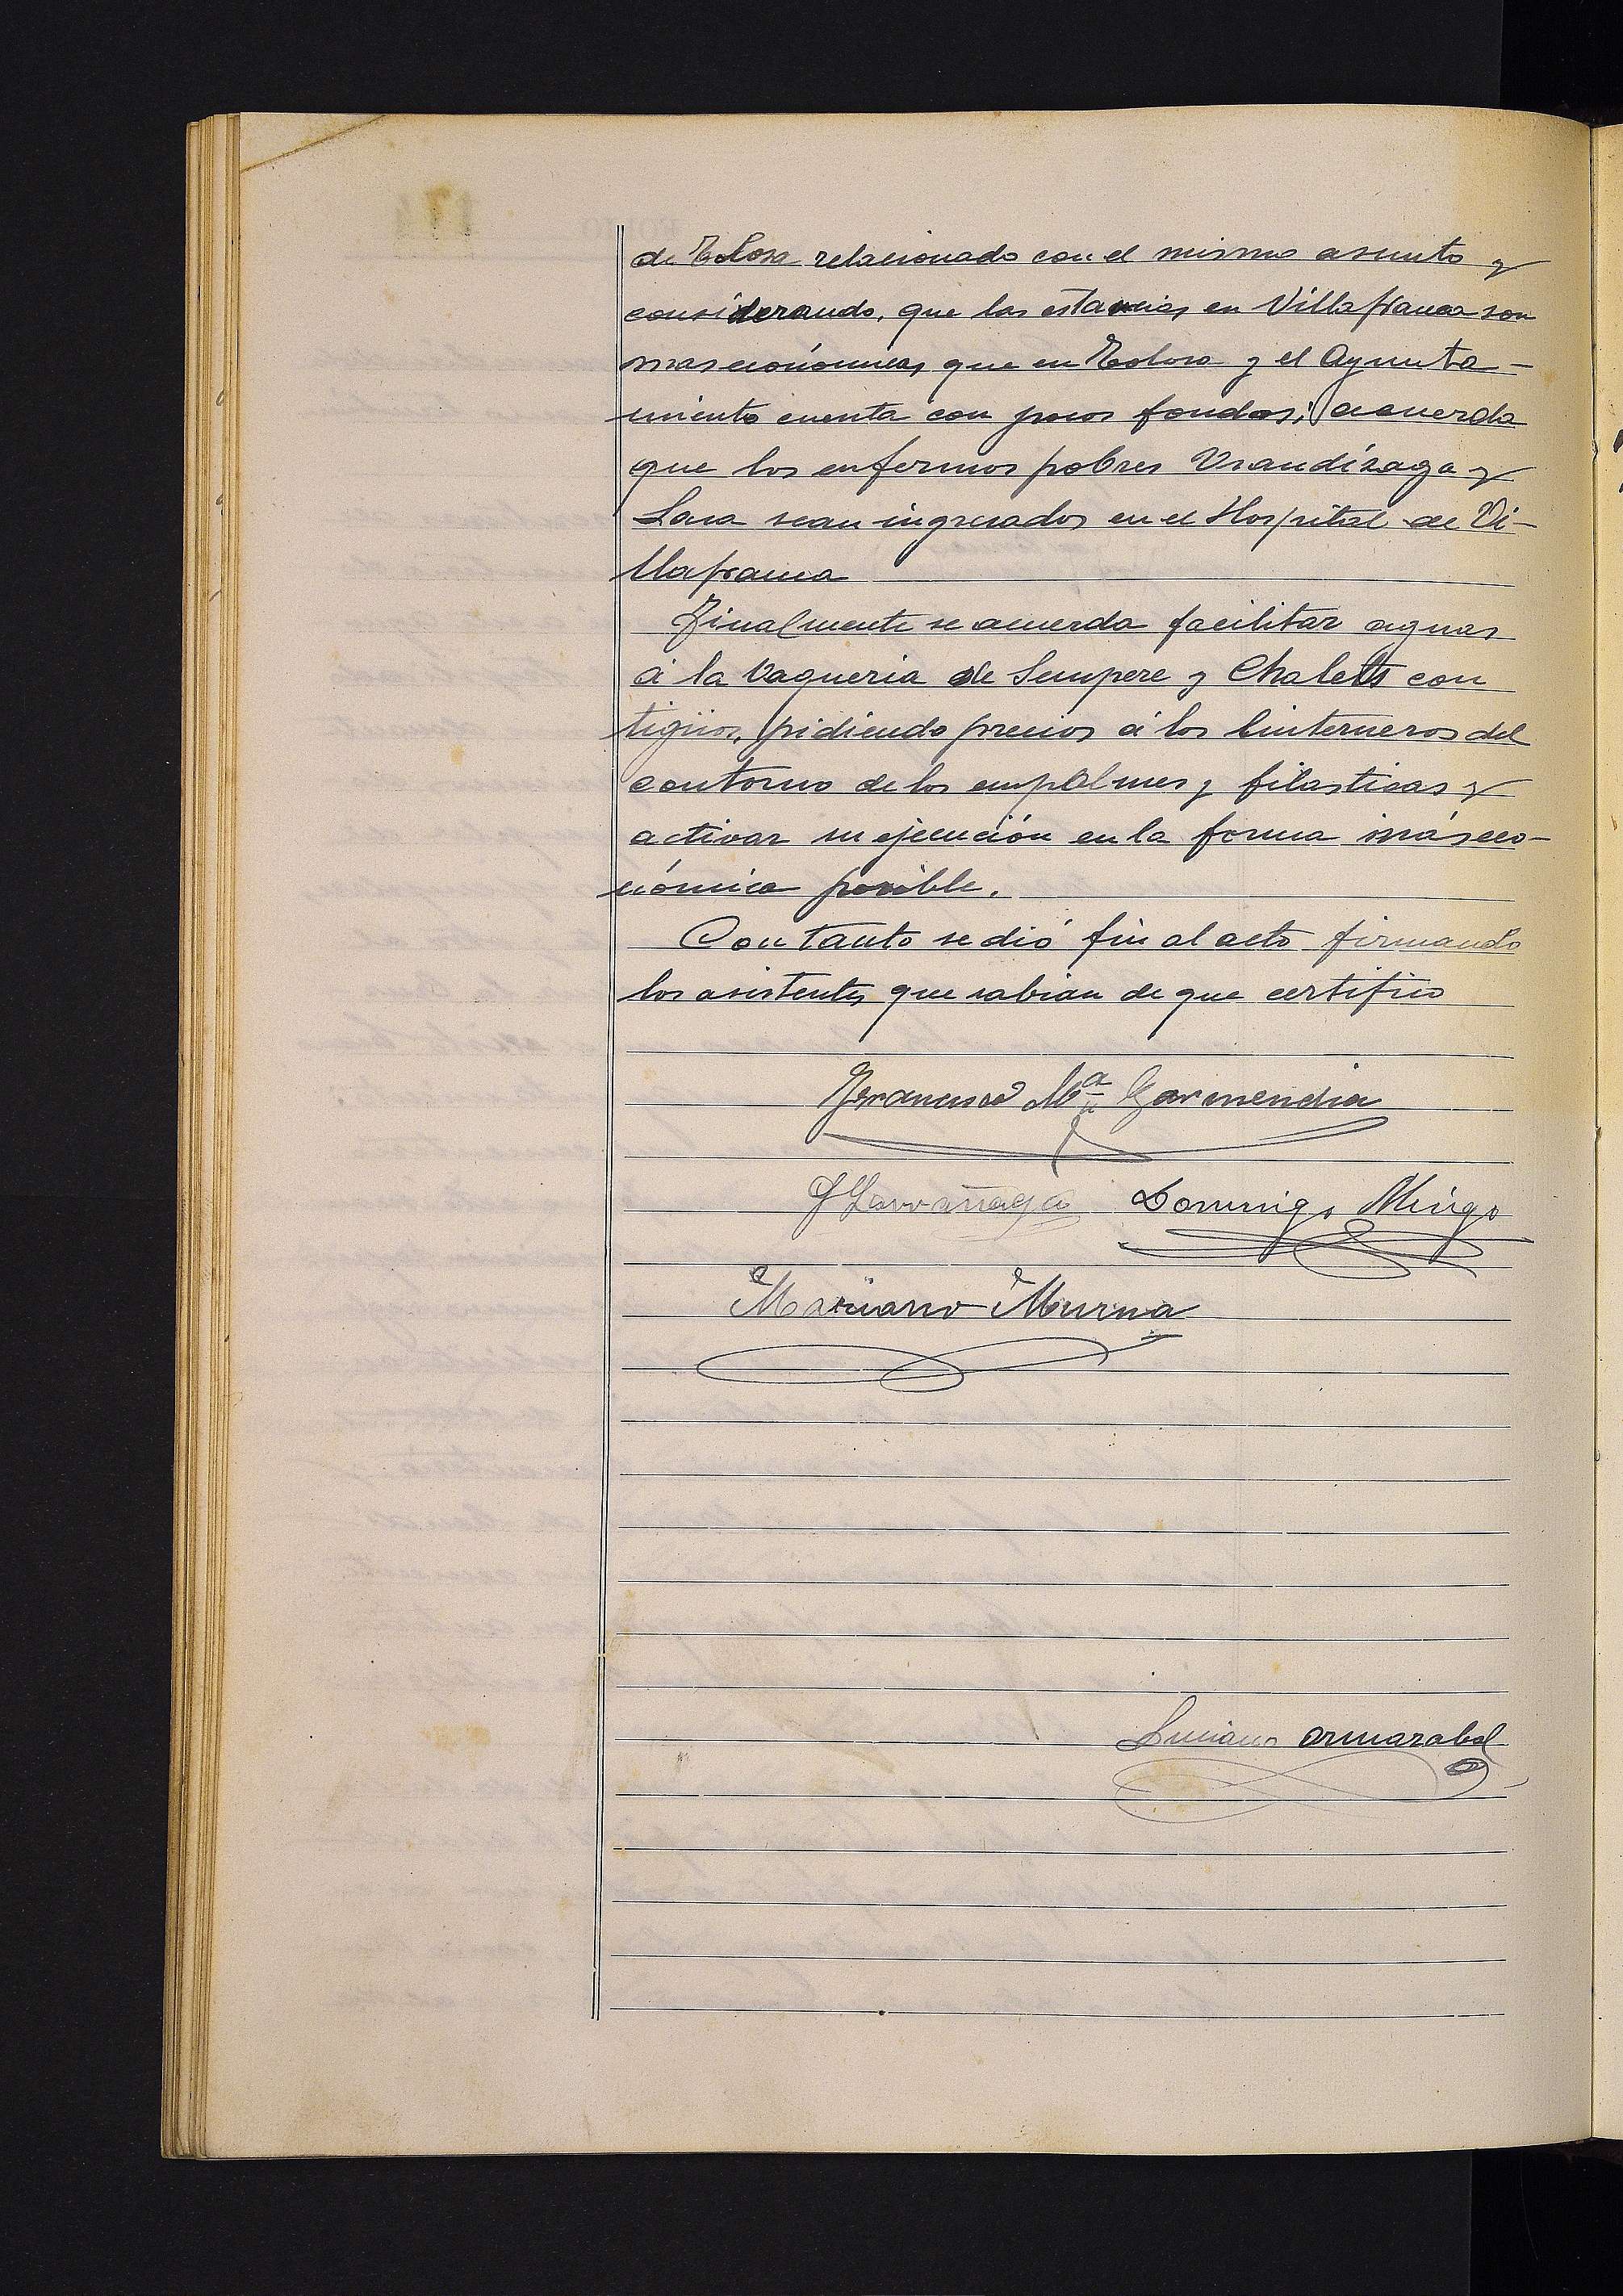 de Tolosa relacionado con el mismo asunto y
considerando, que las estancias en Villafranca son
mas económicas, que en Tolosa y el Ayunta-
miento cuenta con pocos fondos; acuerda
que los enfermos pobres Urandizaga y
Lasa sean ingresados en el Hospital de Vi-
llafranca
Finalmente se acuerda facilitar aguas
á la Vaqueria de Sempere y Chalets con
tigüos, pidiendo precios á los linterneros del
contorno de los empalmes y filasticas y
activar su ejecución en la forma más eco-
nómica posible.
Con tanto se dió fin al acto firmando
los asistentes que sabian de que certifico
Francisco Mª Garmendia
J Larrañaga Domingo Múgo
Mariano Murua
Luciano Armarabal